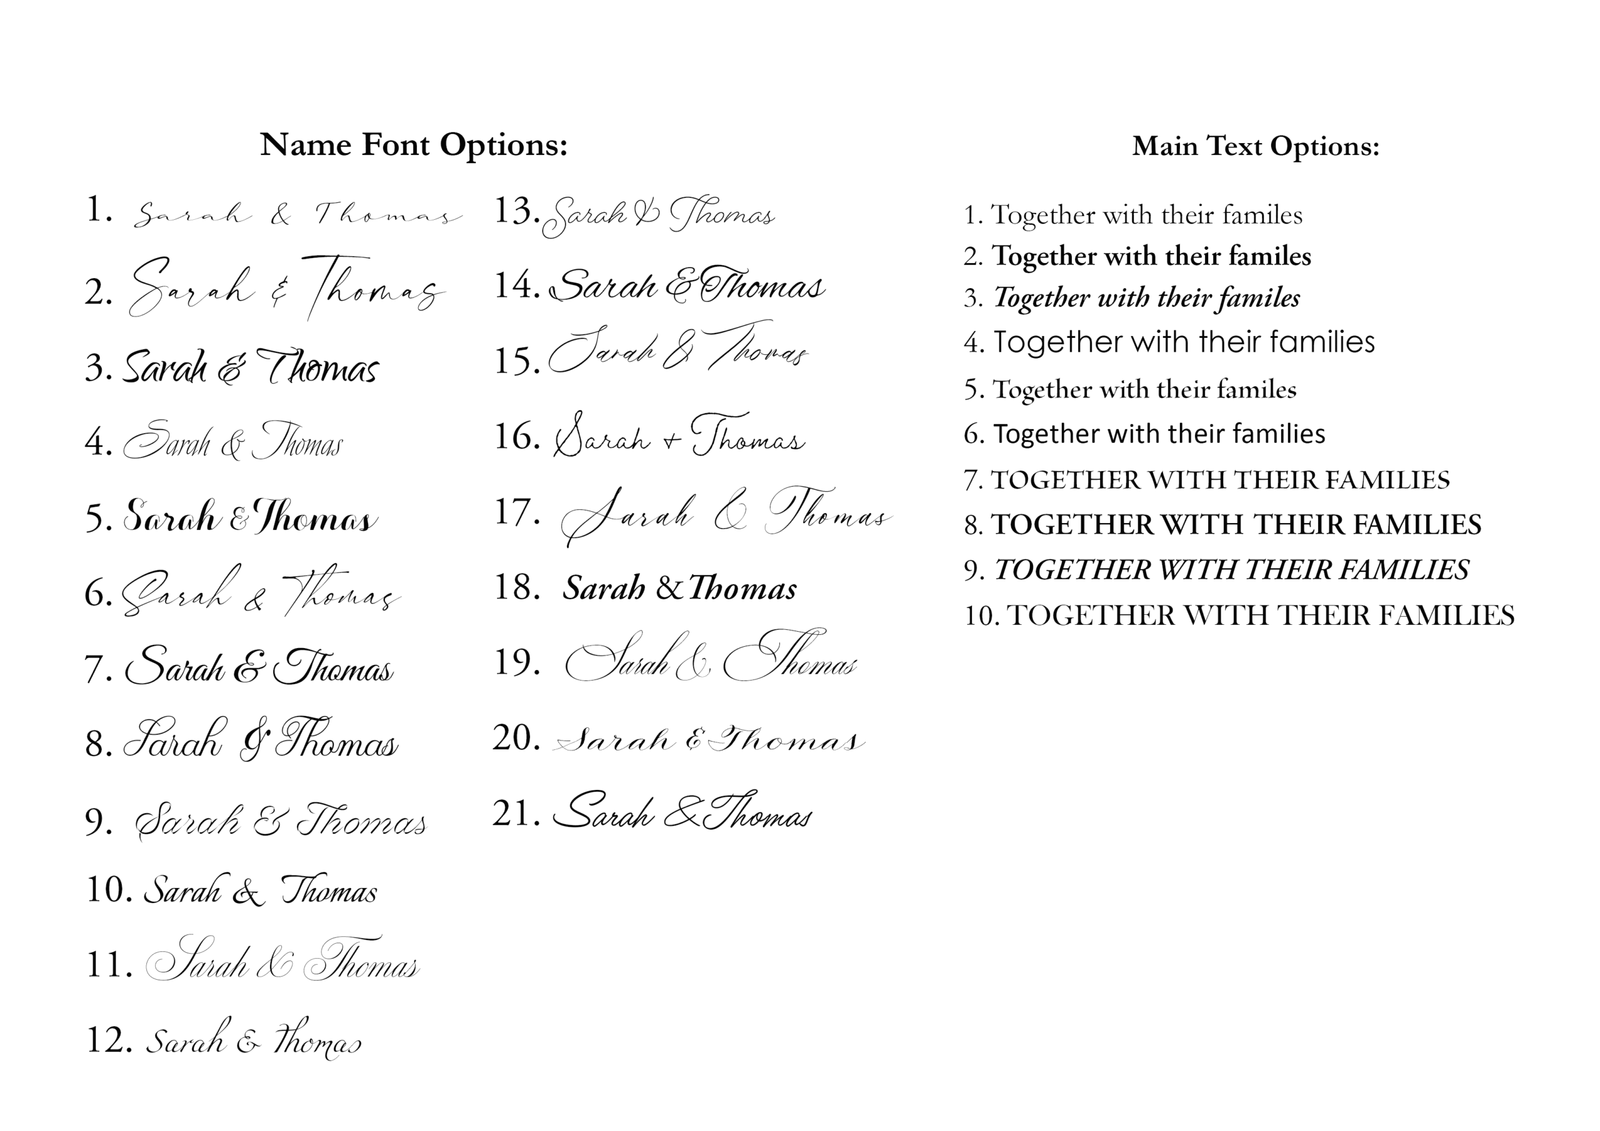 Name Font Options:
1. Sarah & Thomas
2. Sarah & Thomas
3. Sarah & Thomas
4. Sarah & Thomas
5. Sarah & Thomas
6. Sarah & Thomas
7. Sarah & Thomas
8. Sarah & Thomas
9. Sarah & Thomas
10. Sarah & Thomas
11. Sarah & Thomas
12. Sarah & Thomas
13. Sarah & Thomas
14. Sarah & Thomas
15. Sarah & Thomas
16. Sarah + Thomas
17. Sarah & Thomas
18. Sarah & Thomas
19. Sarah & Thomas
20. Sarah & Thomas
21. Sarah & Thomas
Main Text Options:
1. Together with their familes
2. Together with their familes
3. Together with their familes
4. Together with their families
5. Together with their familes
6. Together with their families
7. TOGETHER WITH THEIR FAMILIES
8. TOGETHER WITH THEIR FAMILIES
9. TOGETHER WITH THEIR FAMILIES
10. TOGETHER WITH THEIR FAMILIES